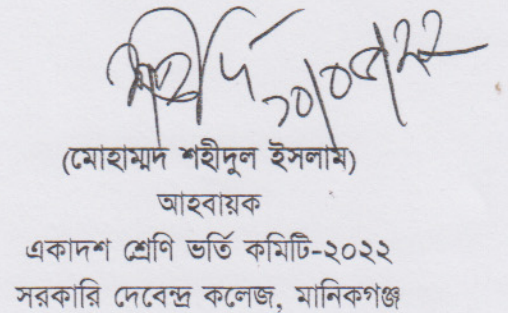 ২০/০৫/২২
(মোহাম্মদ শহীদুল ইসলাম)
আহবায়ক
একাদশ শ্রেণি ভর্তি কমিটি-২০২২
সরকারি দেবেন্দ্র কলেজ, মানিকগঞ্জ